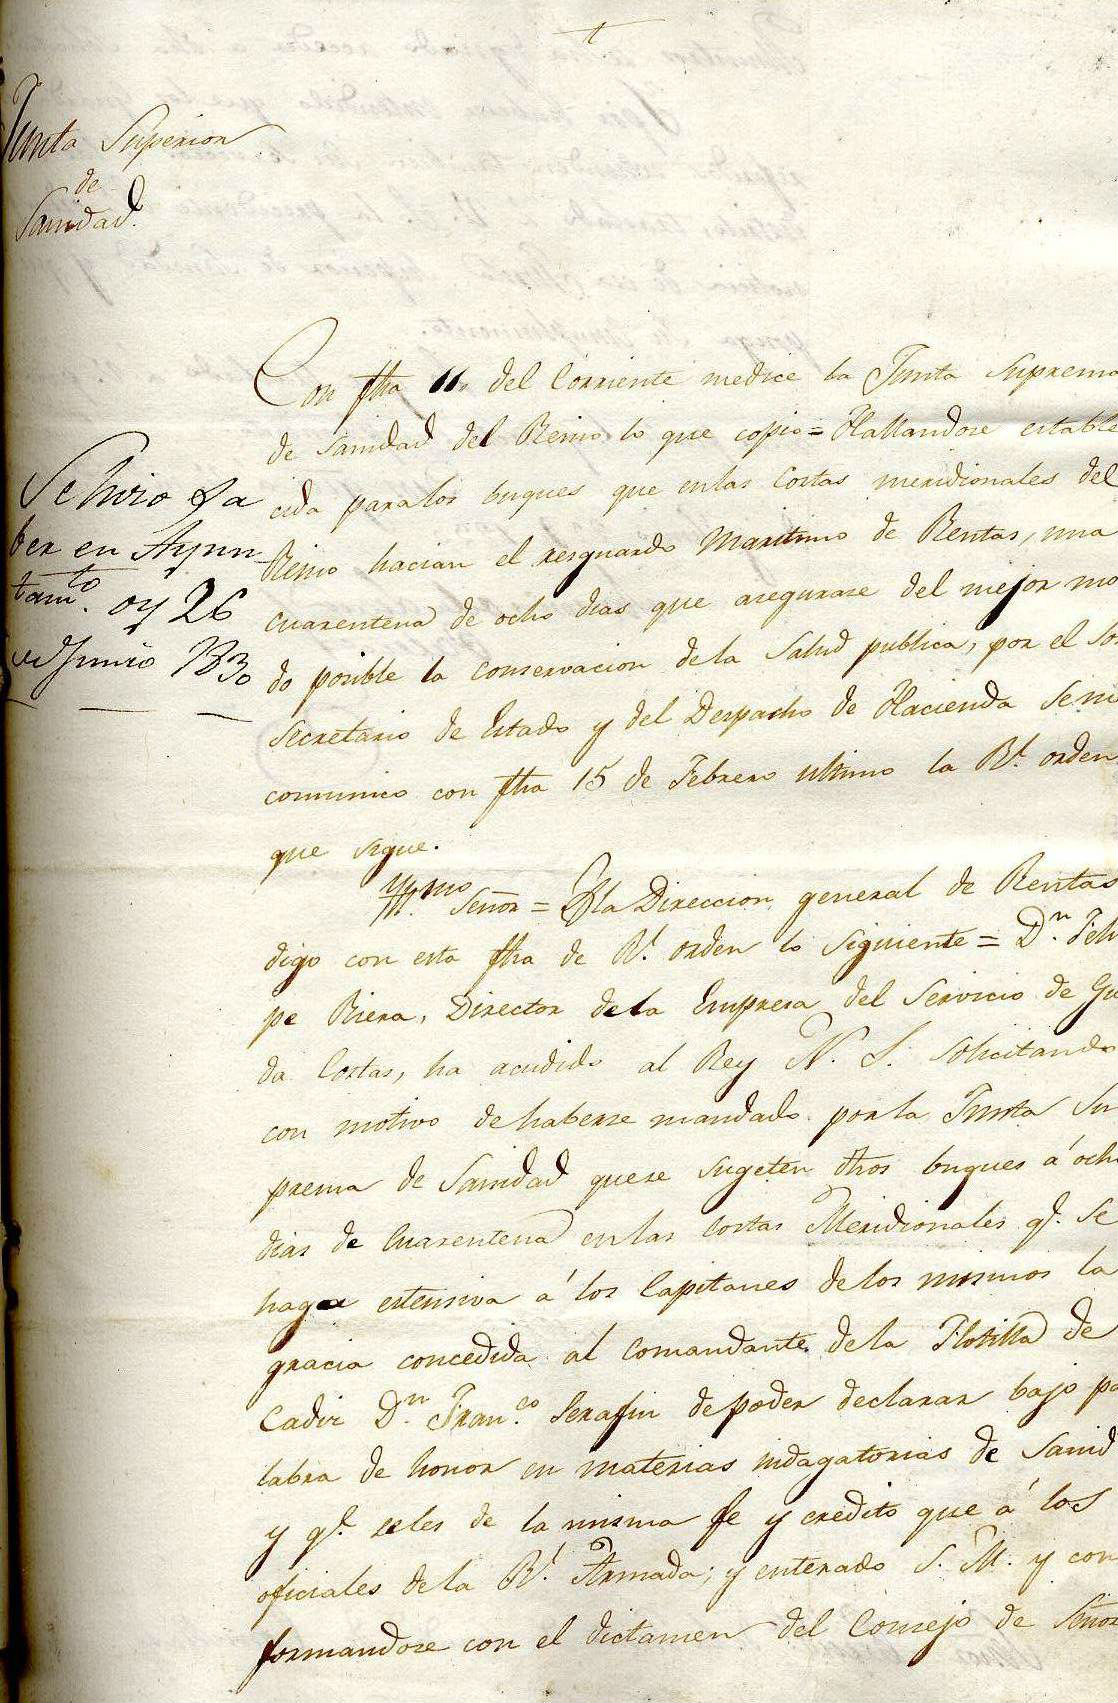 Junta Superior
de
Sanidad.
Se hizo sa
ber en Ayun
tam.to oy 26
de Junio 1830
Con fha 11 del Corriente medice la Junta Suprema
de Sanidad del Reino lo que copio = Hallandose estable
cida paralos buques que enlas Costas meridionales del
Reino hacian el resguardo Maritimo de Rentas, una
cuarentena de ocho dias que asegurase del mejor mo
do posible la conservacion dela Salud publica, por el Sor
Secretario de Estado y del Despacho de Hacienda se me
comunico con fha 15 de Febrero ultimo la Rl. orden
que sigue.
Yllmo Señor = A la Direccion general de Rentas
digo con esta fha de Rl. orden lo siguiente = Dn. Feli
pe Riera, Director dela Empresa del Servicio de Gu
da Costas, ha acudido al Rey N. S. solicitando
con motivo dehaberse mandado porla Junta Su
prema de Sanidad quese sugeten dhos buques á ocho
dias de Cuarentena enlas costas Meridionales qe. se
haga estensiva á los Capitanes delos mismos la
gracia concedida al Comandante dela Flotilla de
Cadiz Dn. Franco. Serafin depoder declarar bajo pa
labra de honor en materias indagatorias de Sanid
y qe. seles de la misma fe y credito que á los
oficiales dela Rl. Armada; y enterado S. M. y con
formandose con el dictamen del Consejo de Señor